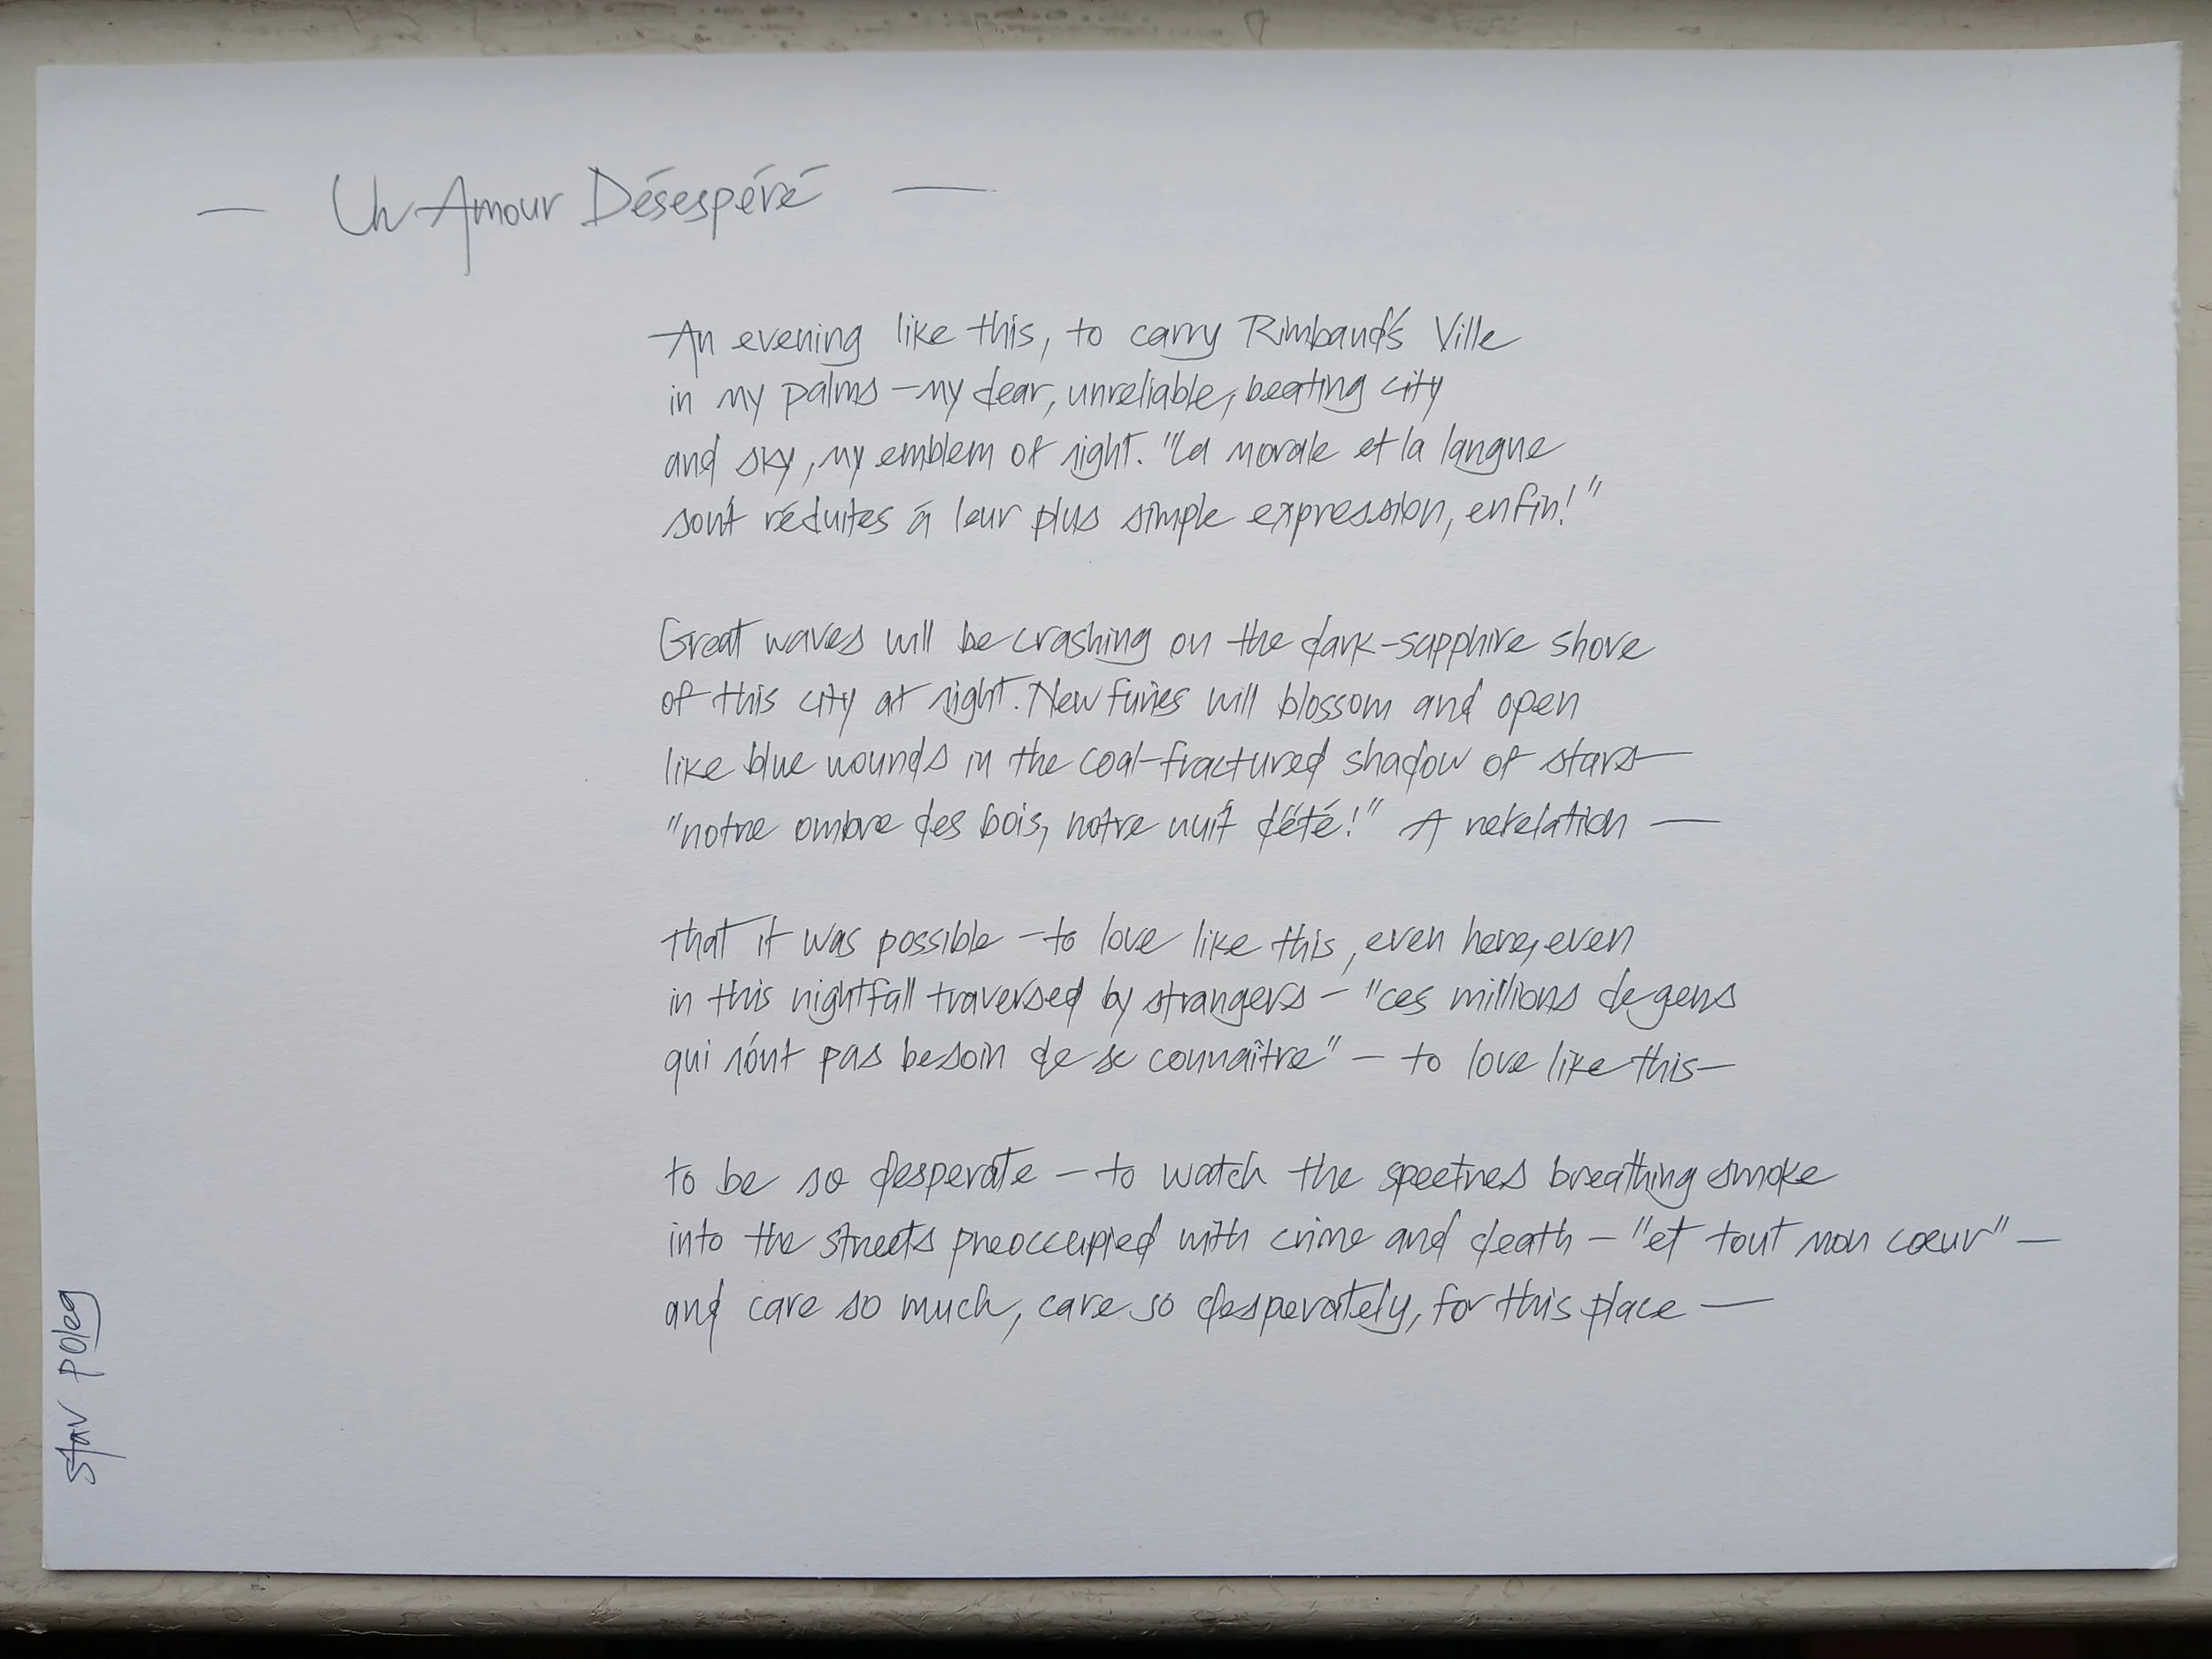 — Un Amour Désespéré —
An evening like this, to carry Rimbaud's Ville
in my palms – my dear, unreliable, beating city
and sky, my emblem of night. "La morale et la langue
sont réduites à leur plus simple expression, enfin!"
Great waves will be crashing on the dark-sapphire shore
of this city at night. New furies will blossom and open
like blue wounds in the coal-fractured shadow of stars —
"notre ombre des bois, notre nuit d'été!" A revelation —
that it was possible – to love like this, even here, even
in this nightfall traversed by strangers – "ces millions de gens
qui n'ont pas besoin de se connaître" – to love like this –
to be so desperate – to watch the spectres breathing smoke
into the streets preoccupied with crime and death – "et tout mon cœur" –
and care so much, care so desperately, for this place —
Stav Poleg